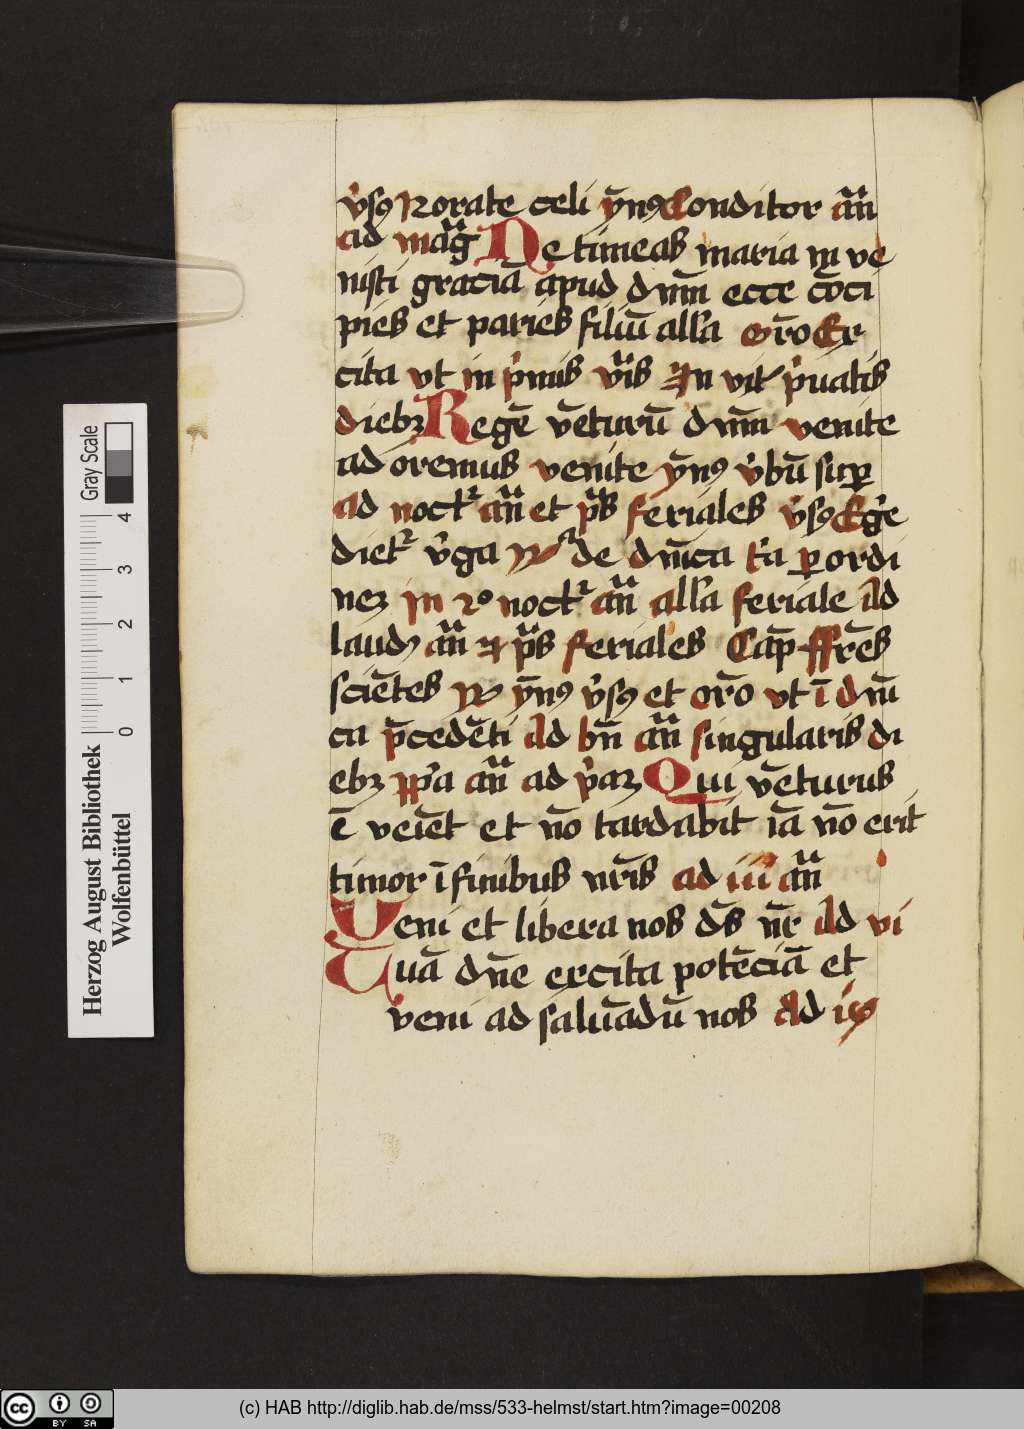 v̉sꝰ Rorate celi ẏ̄nꝰ Conditor an̄
ad maḡ Ne timeas maria in ve
nisti graciā apud dn̄m ecce cōci
pies et paries filiū alla or̄o Ex
cita vt in p̉mis vr̄is In vit p̉uatis
diebꝫ Regē vēturū dn̄m venite
adoremus venite ẏ̄nꝰ v̉bū suꝑ
ad noctꝛ an̄ et ps̄ feriales v̉sꝰ Eg̉e
dietꝛ v̉ga ꝶ de dn̄ica t̉a ꝑ ordi
neꝫ in 2º noctꝛ an̄ alla feriale Ad
laudꝭ an̄ ⁊ ps̄ feriales Cap̄ ffr̄es
sciētes ꝶ ẏ̄nꝰ v̉sꝰ et or̄o vt ī dn̄i
ca p̄cedēti Ad bn̄ an̄ singularis di
ebꝫ ꝓp̉a an̄ ad p̉aꝫ Qui vēturus
ē veiēt et nō tardabit iā nō erit
timor ī finibus nr̄is ad iii an̄
Veni et libera nos ds̄ nr̄ Ad vi
Tuā dn̄e excita potēciā et
veni ad saluādū nos Ad ix
Gray Scale
0 1 2 3 4
Herzog August Bibliothek
Wolfenbüttel
cc BY SA
(c) HAB http://diglib.hab.de/mss/533-helmst/start.htm?image=00208